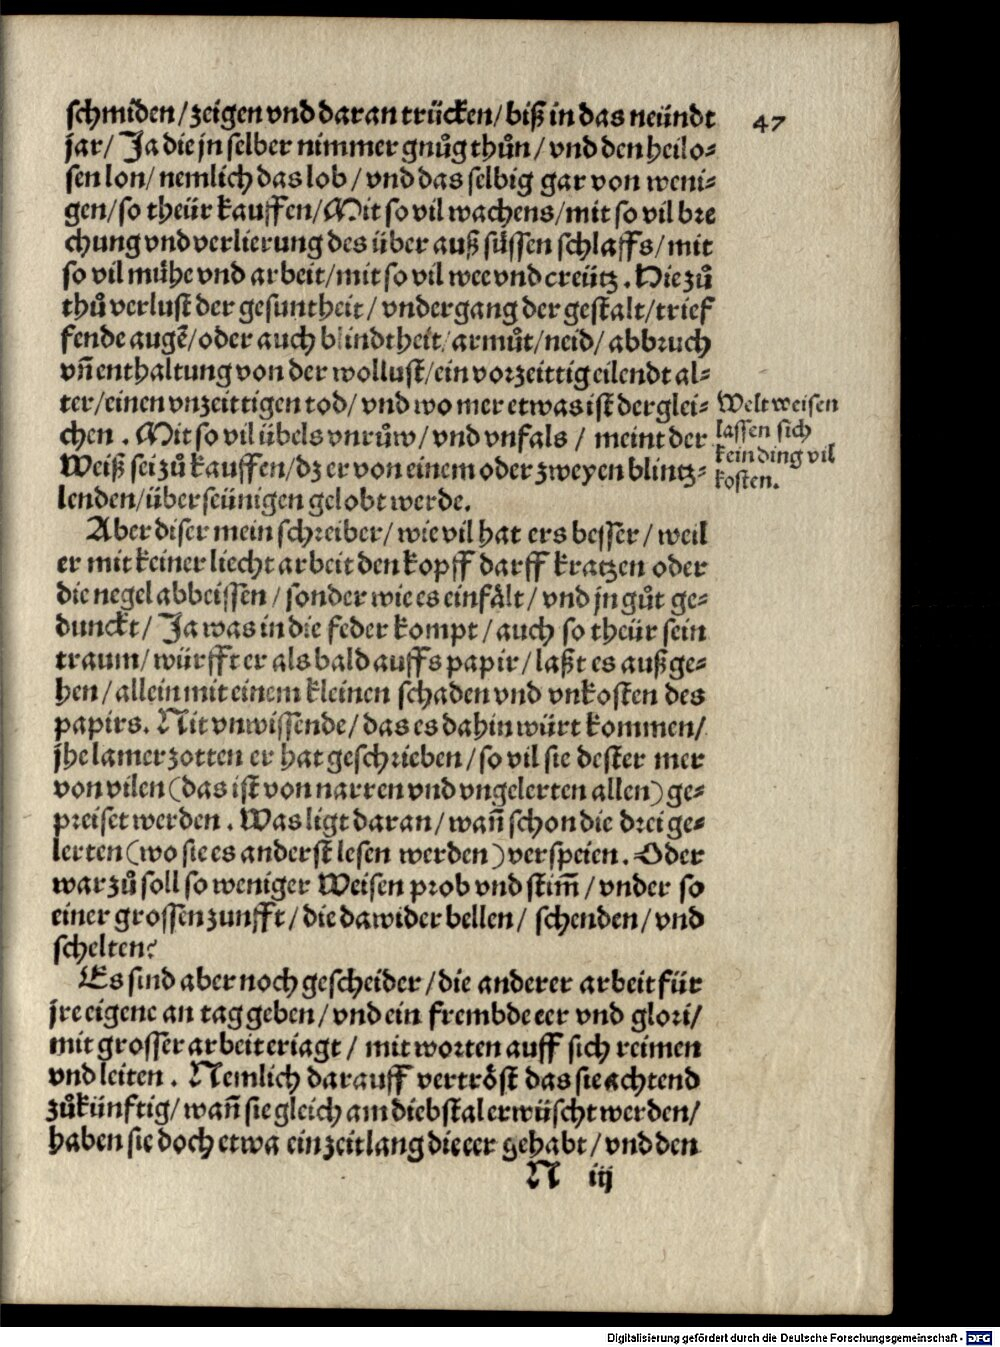 schmiden/zeigen vnd daran trücken/biß in das neündt
47
jar/ Ja die jn selber nimmer gnůg thůn/vnd den heilo⸗
sen lon/nemlich das lob/vnd das selbig gar von weni⸗
gen/so theür kauffen/Mit so vil wachens/mit so vil bre
chung vnd verlierung des über auß süssen schlaffs/mit
so vil mühe vnd arbeit/mit so vil wee vnd creütz. Hie zů
thů verlust der gesuntheit/vndergang der gestalt/trief
fende augẽ/oder auch blindtheit/armůt/neid/abbruch
vñ enthaltung von der wollust/ein vorzeittig eilendt al⸗
ter/einen vnzeittigen tod/vnd wo mer etwas ist derglei⸗
chen. Mit so vil übels vnrůw/vnd vnfals/ meint der
Weiß sei zů kauffen/dz er von einem oder zweyen blintz⸗
lenden/überseünigen gelobt werde.
Welt weisen
lassen sich
kein ding vil
kosten.
Aber diser mein schreiber/wie vil hat ers besser/weil
er mit keiner liecht arbeit den kopff darff kratzen oder
die negel abbeissen/sonder wie es einfålt/vnd jn gůt ge⸗
dunckt/ Ja was in die feder kompt/auch so theür sein
traum/würfft er als bald auffs papir/laßt es auß ge⸗
hen/allein mit einem kleinen schaden vnd vnkosten des
papirs. Nit vnwissende/das es dahin würt kommen/
jhe lamer zotten er hat geschrieben/so vil sie dester mer
von vilen (das ist von narren vnd vngelerten allen) ge⸗
preiset werden. Was ligt daran/wañ schon die drei ge⸗
lerten (wo sie es anderst lesen werden) verspeien. Oder
war zů soll so weniger Weisen prob vnd stim̃/vnder so
einer grossen zunfft/die dawider bellen/ schenden/vnd
schelten?
Es sind aber noch gescheider/die anderer arbeit für
jre eigene an tag geben/vnd ein frembde eer vnd glori/
mit grosser arbeit eriagt/ mit worten auff sich reimen
vnd leiten. Nemlich darauff vertröst das sie achtend
zůkünftig/wañ sie gleich am diebstal erwüscht werden/
haben sie doch etwa ein zeitlang die eer gehabt/vnd den
N iij
Digitalisierung gefördert durch die Deutsche Forschungsgemeinschaft - DFG